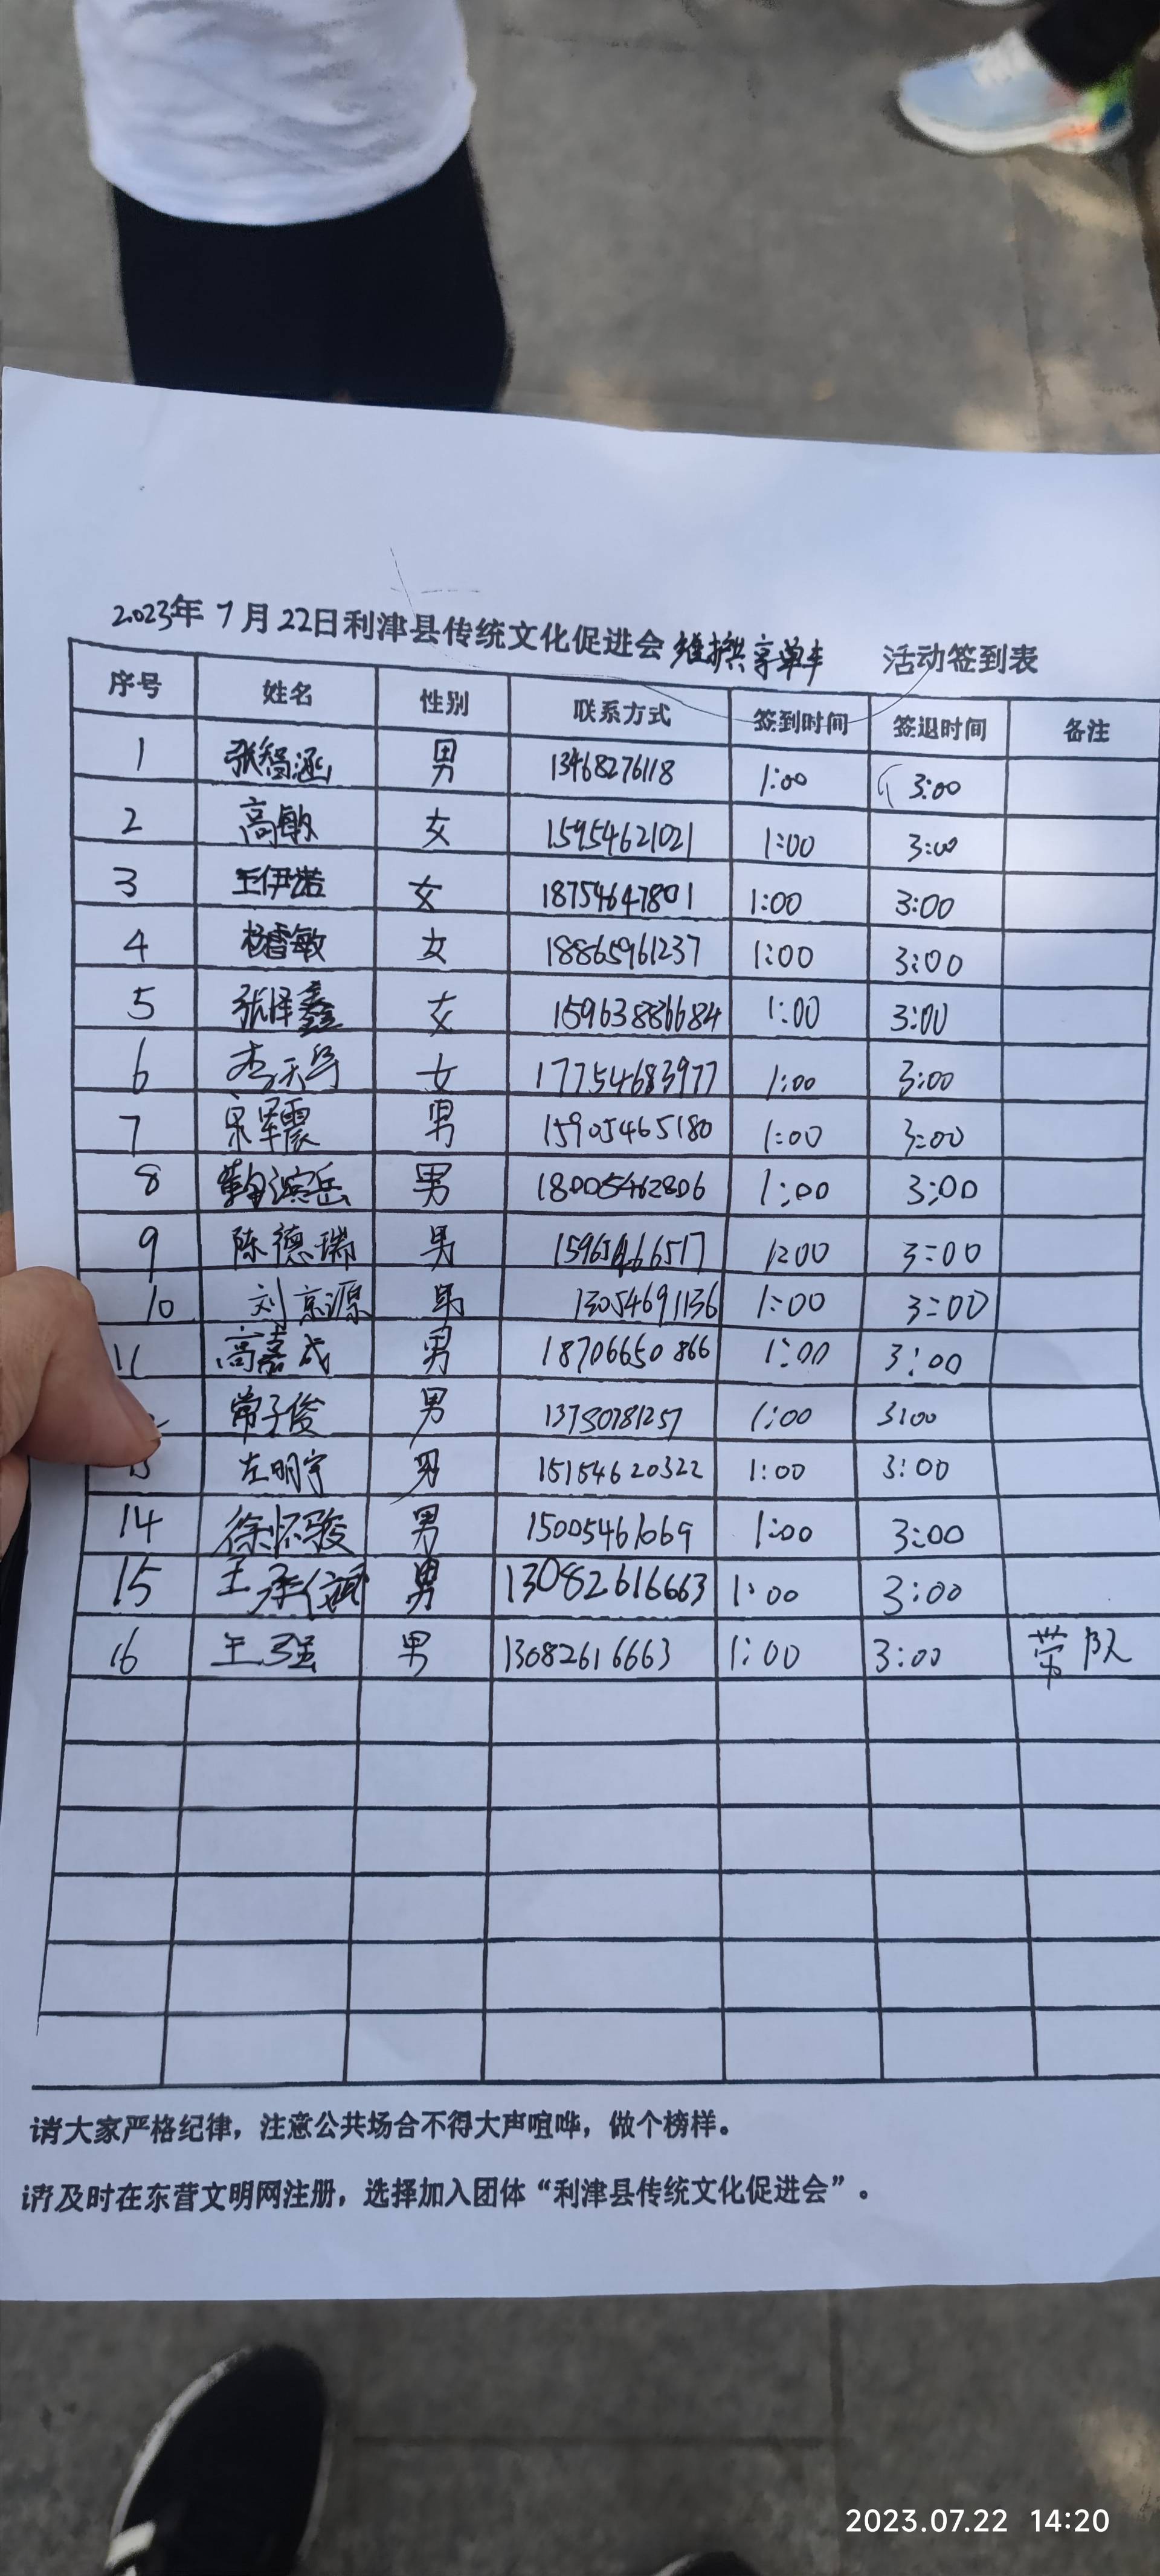 2023年7月22日利津县传统文化促进会 维护共享单车 活动签到表
序号 姓名 性别 联系方式 签到时间 签退时间 备注
1 张智涵 男 13468276118 1:00 3:00
2 高敏 女 15954621021 1:00 3:00
3 王伊诺 女 18754647801 1:00 3:00
4 杨睿敏 女 18865961237 1:00 3:00
5 张泽鑫 女 1:00 3:00
6 李天宇 女 17754683977 1:00 3:00
7 男 15905465180 1:00 3:00
8 男 18005462806 1:00 3:00
9 陈德瑞 男 1:00 3:00
10 刘京源 男 13054691136 1:00 3:00
11 高嘉成 男 18706650866 1:00 3:00
常子俊 男 13780781257 1:00 3:00
13 左明宇 男 15154620322 1:00 3:00
14 徐怀骏 男 1:00 3:00
15 王 男 13082616663 1:00 3:00
16 王强 男 13082616663 1:00 3:00 带队
请大家严格纪律，注意公共场合不得大声喧哗，做个榜样。
请及时在东营文明网注册，选择加入团体“利津县传统文化促进会”。
2023.07.22 14:20